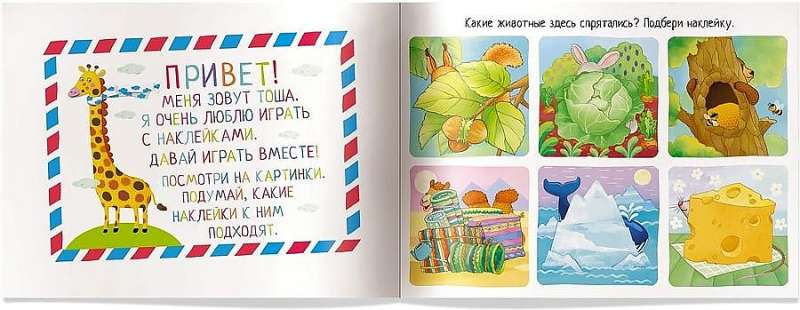 ПРИВЕТ!
МЕНЯ ЗОВУТ ТОША.
Я ОЧЕНЬ ЛЮБЛЮ ИГРАТЬ
С НАКЛЕЙКАМИ.
ДАВАЙ ИГРАТЬ ВМЕСТЕ!
ПОСМОТРИ НА КАРТИНКИ.
ПОДУМАЙ, КАКИЕ
НАКЛЕЙКИ К НИМ
ПОДХОДЯТ.
Какие животные здесь спрятались? Подбери наклейку.